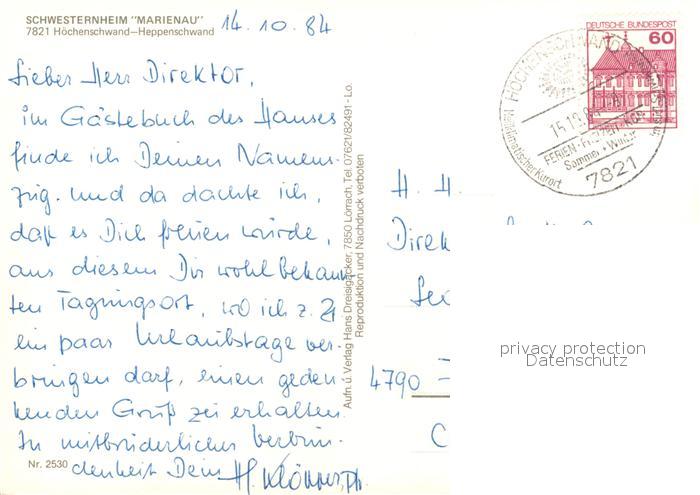 SCHWESTERNHEIM "MARIENAU"
7821 Höchenschwand—Heppenschwand
14.10.84
Lieber Herr Direktor,
im Gästebuch des Hauses
finde ich Deinen Namens-
zug. und da dachte ich,
daß es Dich freuen würde,
aus diesem Dir wohlbekann-
ten Tagungsort, wo ich z. Zt
ein paar Urlaubstage ver-
bringen darf, einen geden-
kenden Gruß zu erhalten.
In mitbrüderlicher Verbun-
denheit Dein
Nr. 2530
Aufn. ü. Verlag Hans Dreisigacker, 7850 Lörrach, Tel. 07621/82491 - Lo.
Reproduktion und Nachdruck verboten
DEUTSCHE BUNDESPOST
60
HÖCHENSCHWAND
FERIEN-FREIZEIT-KUR
Sommer + Winter
7821
Heilklimatischer Kurort
H. H.
Direk
4790
privacy protection
Datenschutz